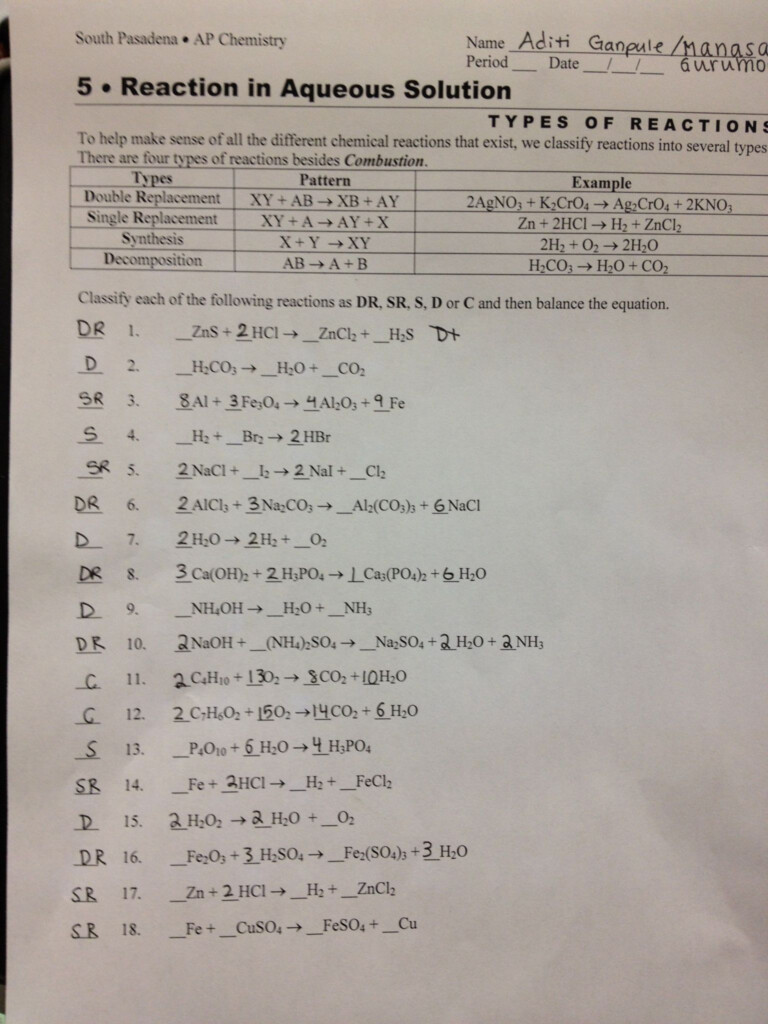 South Pasadena • AP Chemistry
Name Aditi Ganpule / Manasa
Period ___ Date __/__/__ Gurumo
5 • Reaction in Aqueous Solution
TYPES OF REACTIONS
To help make sense of all the different chemical reactions that exist, we classify reactions into several types
There are four types of reactions besides Combustion.
Types Pattern Example
Double Replacement XY + AB → XB + AY 2AgNO₃ + K₂CrO₄ → Ag₂CrO₄ + 2KNO₃
Single Replacement XY + A → AY + X Zn + 2HCl → H₂ + ZnCl₂
Synthesis X + Y → XY 2H₂ + O₂ → 2H₂O
Decomposition AB → A + B H₂CO₃ → H₂O + CO₂
Classify each of the following reactions as DR, SR, S, D or C and then balance the equation.
DR 1. __ZnS + 2 HCl → __ZnCl₂ + __H₂S
D 2. __H₂CO₃ → __H₂O + __CO₂
SR 3. 8 Al + 3 Fe₃O₄ → 4 Al₂O₃ + 9 Fe
S 4. __H₂ + __Br₂ → 2 HBr
SR 5. 2 NaCl + __I₂ → 2 NaI + __Cl₂
DR 6. 2 AlCl₃ + 3 Na₂CO₃ → __Al₂(CO₃)₃ + 6 NaCl
D 7. 2 H₂O → 2 H₂ + __O₂
DR 8. 3 Ca(OH)₂ + 2 H₃PO₄ → 1 Ca₃(PO₄)₂ + 6 H₂O
D 9. __NH₄OH → __H₂O + __NH₃
DR 10. 2 NaOH + __(NH₄)₂SO₄ → __Na₂SO₄ + 2 H₂O + 2 NH₃
C 11. 2 C₄H₁₀ + 13 O₂ → 8 CO₂ + 10 H₂O
C 12. 2 C₇H₆O₂ + 15 O₂ → 14 CO₂ + 6 H₂O
S 13. __P₄O₁₀ + 6 H₂O → 4 H₃PO₄
SR 14. __Fe + 2 HCl → __H₂ + __FeCl₂
D 15. 2 H₂O₂ → 2 H₂O + __O₂
DR 16. __Fe₂O₃ + 3 H₂SO₄ → __Fe₂(SO₄)₃ + 3 H₂O
SR 17. __Zn + 2 HCl → __H₂ + __ZnCl₂
SR 18. __Fe + __CuSO₄ → __FeSO₄ + __Cu